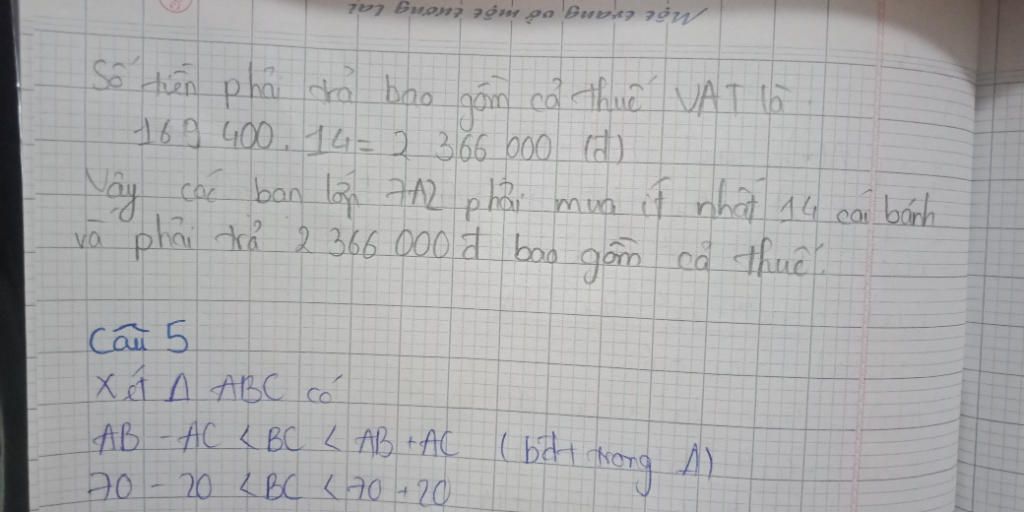 Một trang vở một tương lai
Số tiền phải trả bao gồm cả thuế VAT là
169 400. 14 = 2 366 000 (đ)
Vậy các bạn lớp 7A2 phải mua ít nhất 14 cái bánh
và phải trả 2 366 000 đ bao gồm cả thuế.
Câu 5
Xét Δ ABC có
AB - AC < BC < AB + AC (bđt trong Δ)
70 - 20 < BC < 70 + 20